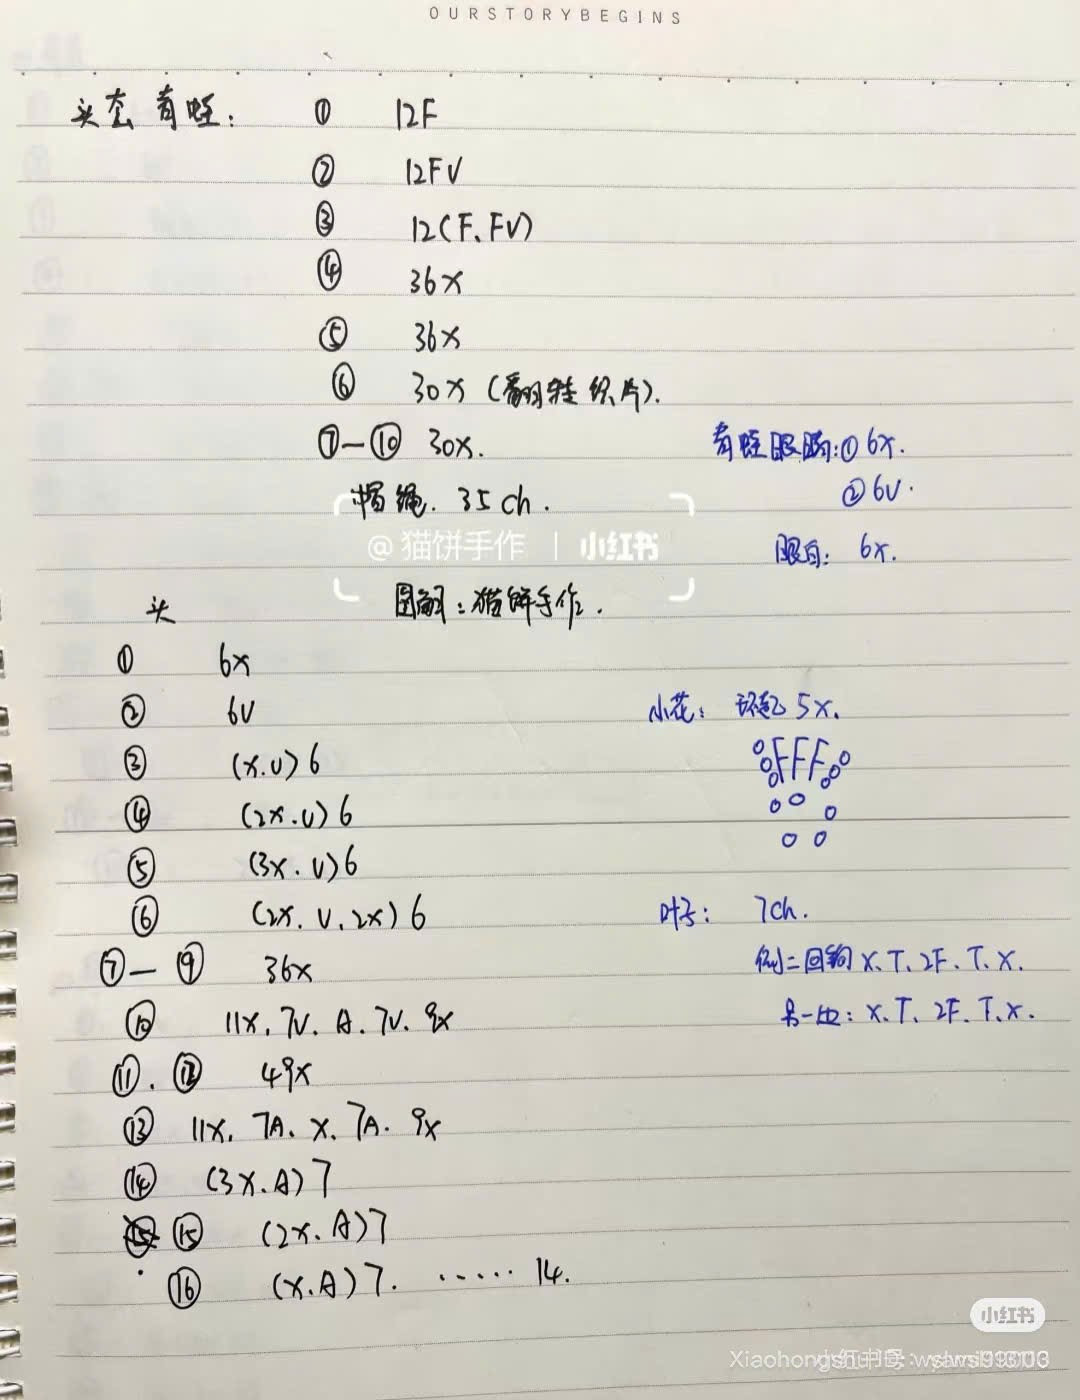 OURSTORYBEGINS
头套 青蛙: ① 12F
② 12FV
③ 12(F、FV)
④ 36X
⑤ 36X
⑥ 30X (翻转织片).
⑦—⑩ 30X.
帽绳. 35ch.
青蛙眼睛:① 6X.
② 6V.
眼白: 6X.
@猫饼手作 | 小红书
图解:猫饼手作.
头
① 6X
② 6V
③ (X.V)6
④ (2X.V)6
⑤ (3X.V)6
⑥ (2X.V.2X)6
⑦—⑨ 36X
⑩ 11X.7V.A.7V.9X
⑪.⑫ 49X
⑬ 11X.7A.X.7A.9X
⑭ (3X.A)7
⑮ (2X.A)7
⑯ (X.A)7. ...... 14.
小花: 环起5X.
FFF
叶子: 7ch.
倒二回钩 X.T.2F.T.X.
另一边: X.T.2F.T.X.
小红书